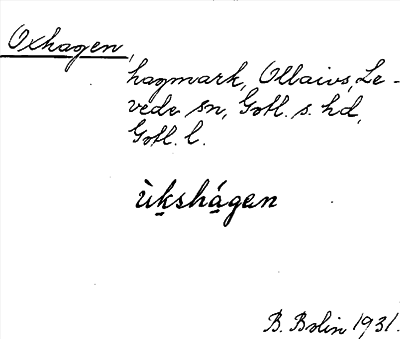 Oxhagen,
hagmark, Ollaivs, Le-
vede sn, Gotl. s. hd,
Gotl. l.
ùkshágen
B. Bolin 1931.